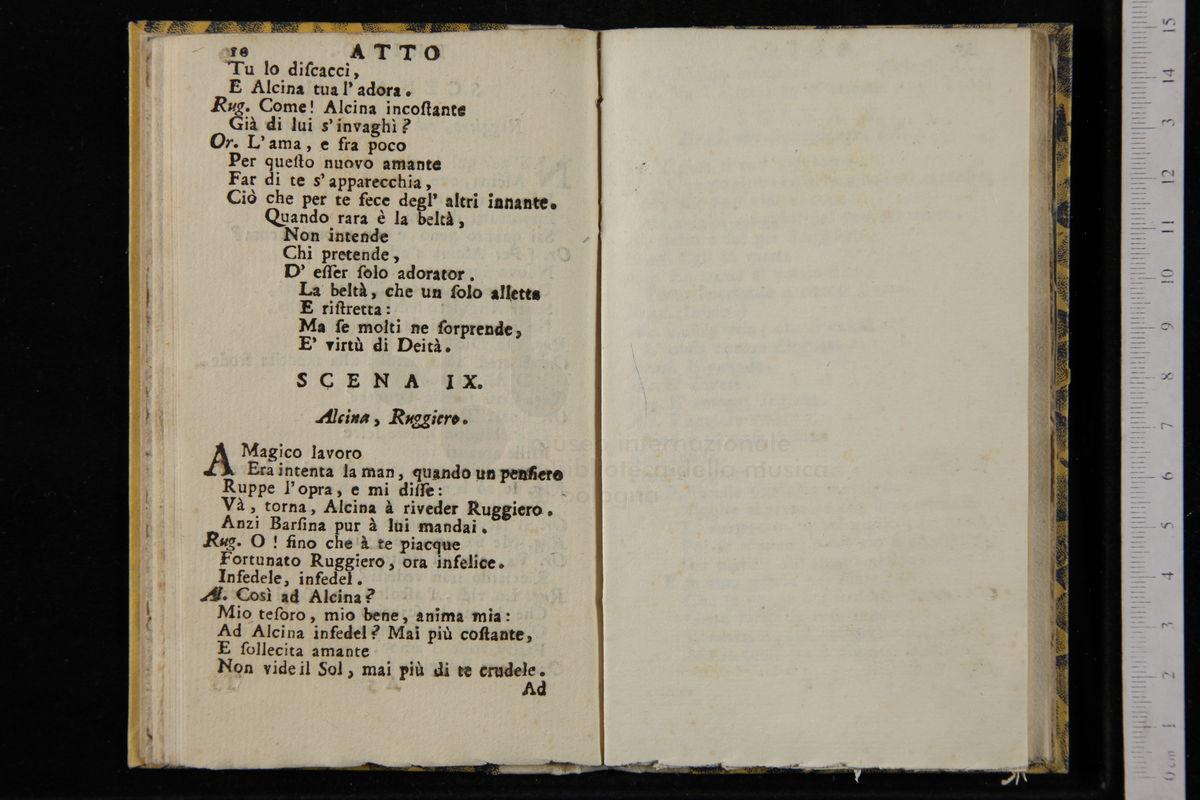 10 ATTO
Tu lo diſcacci,
E Alcina tua l' adora.
Rug. Come! Alcina incoſtante
Già di lui s' invaghì?
Or. L' ama, e fra poco
Per queſto nuovo amante
Far di te s' apparecchia,
Ciò che per te fece degl' altri innante.
Quando rara è la beltà,
Non intende
Chi pretende,
D' eſſer ſolo adorator.
La beltà, che un ſolo alletta
E riſtretta:
Ma ſe molti ne ſorprende,
E' virtù di Deità.
SCENA IX.
Alcina, Ruggiero.
A Magico lavoro
Era intenta la man, quando un penſiero
Ruppe l' opra, e mi diſſe:
Và, torna, Alcina à riveder Ruggiero.
Anzi Barſina pur à lui mandai.
Rug. O! fino che à te piacque
Fortunato Ruggiero, ora infelice.
Infedele, infedel.
Al. Così ad Alcina?
Mio teſoro, mio bene, anima mia:
Ad Alcina infedel? Mai più coſtante,
E ſollecita amante
Non vide il Sol, mai più di te crudele.
Ad
museo internazionale
e biblioteca della musica
di bologna
0 cm 1 2 3 4 5 6 7 8 9 10 11 12 3 14 15